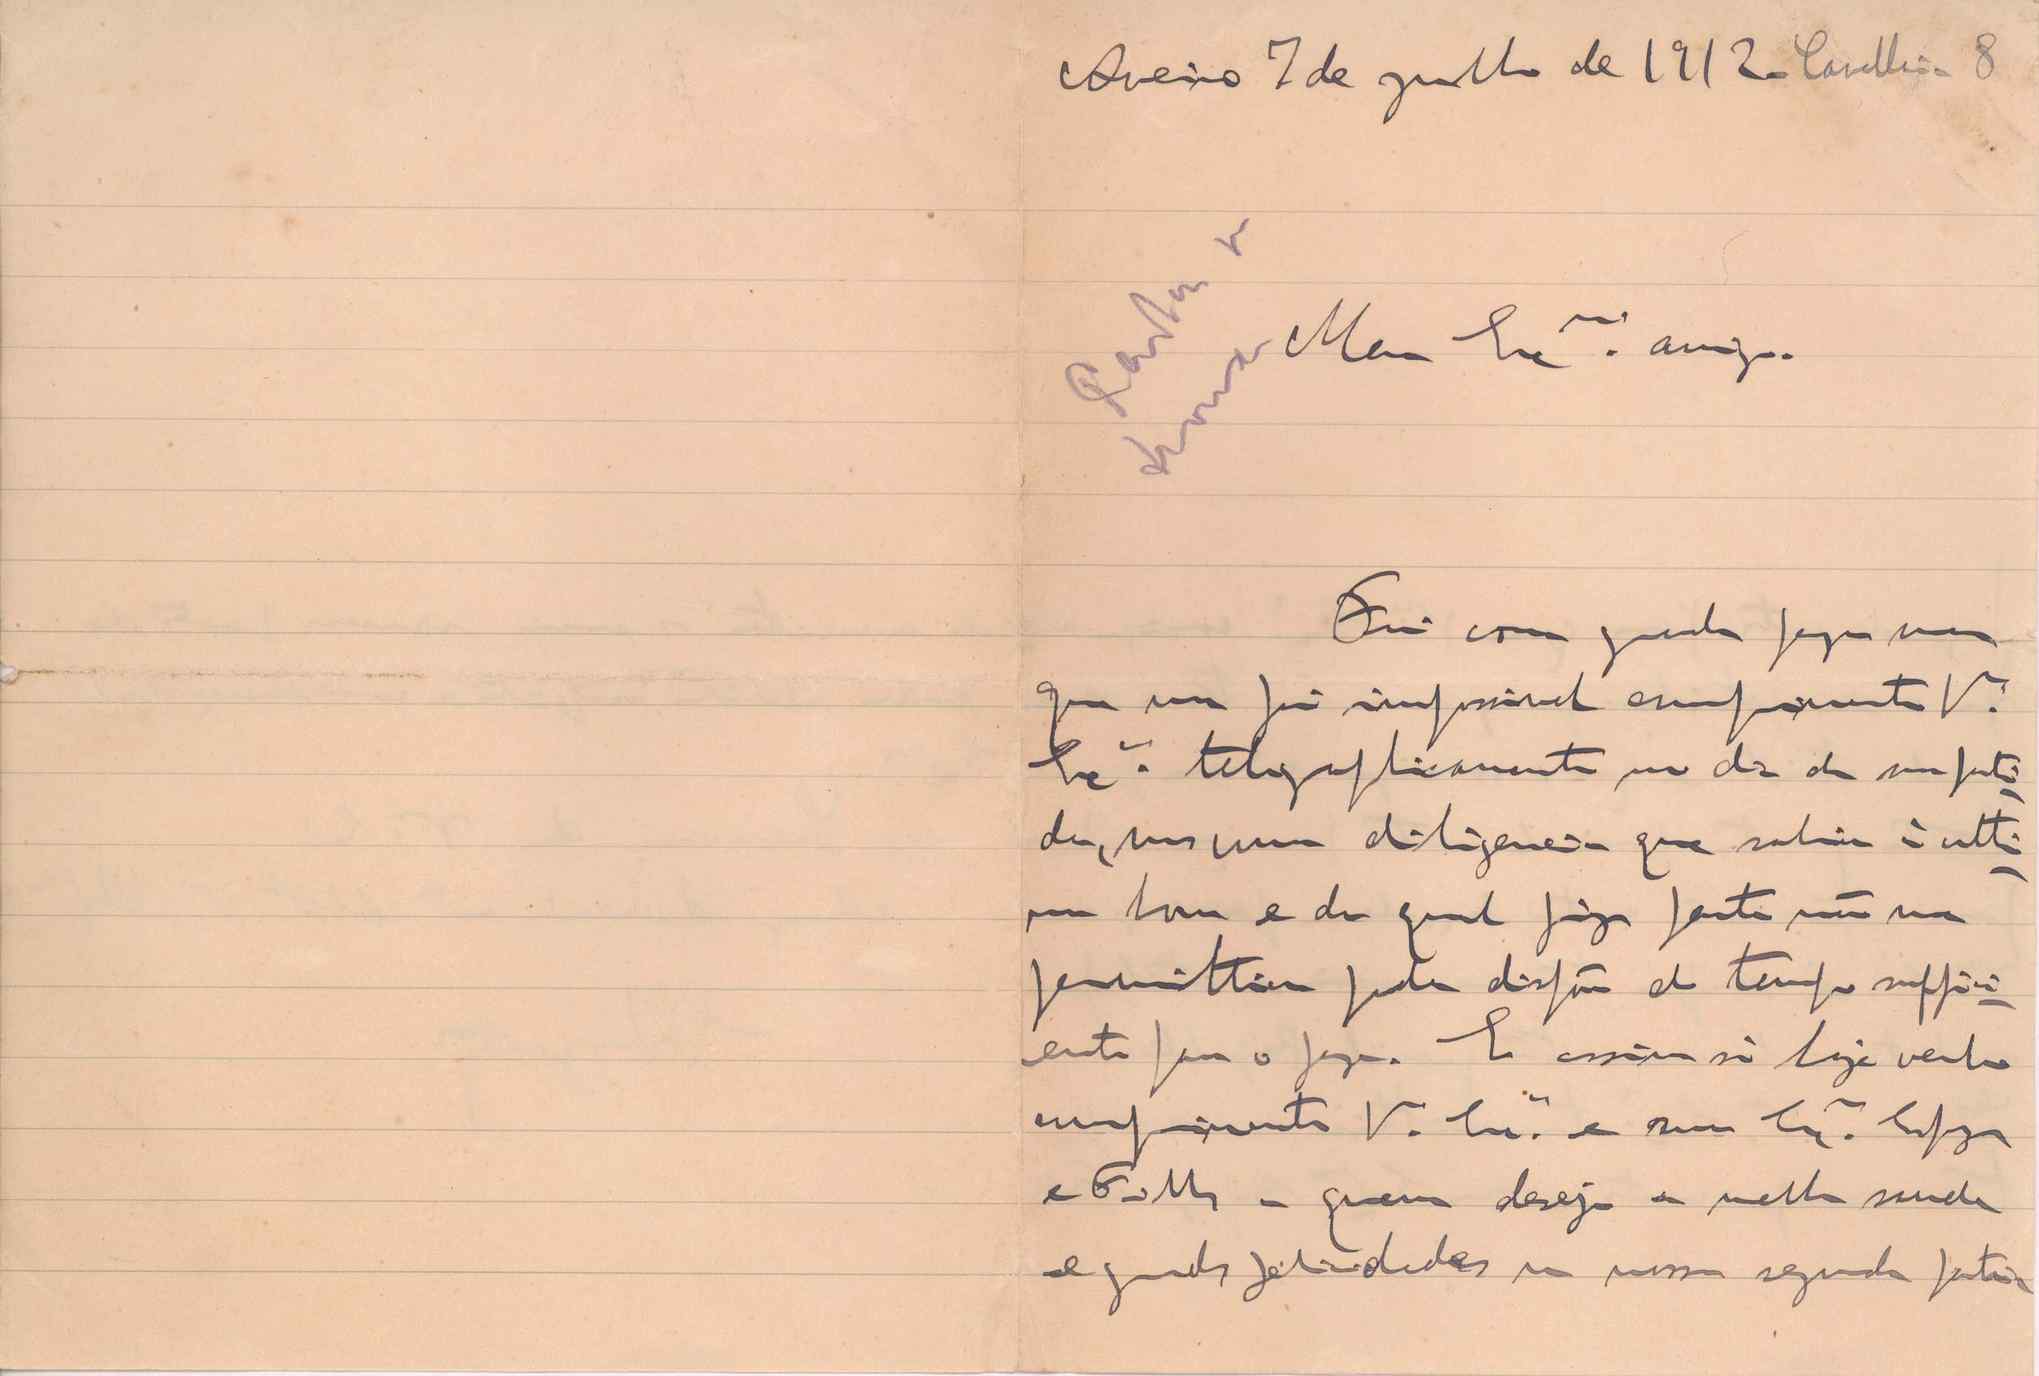 Aveiro 7 de julho de 1912. Cavallaria 8
Meu Exmo. amigo.
Foi com grande pezar meu
que me foi impossivel cumprimentar V.
Exa. telegraphicamente no dia da sua parti-
da, mas uma diligencia que sahiu á ulti-
ma hora e da qual fiz parte não me
permittiu poder dispôr do tempo suffici-
ente para o fazer. E assim só hoje venho
cumprimentar V. Exa. e sua Exma. Esposa
e Filhos a quem desejo a melhor saude
e grandes felicidades na nossa segunda patria